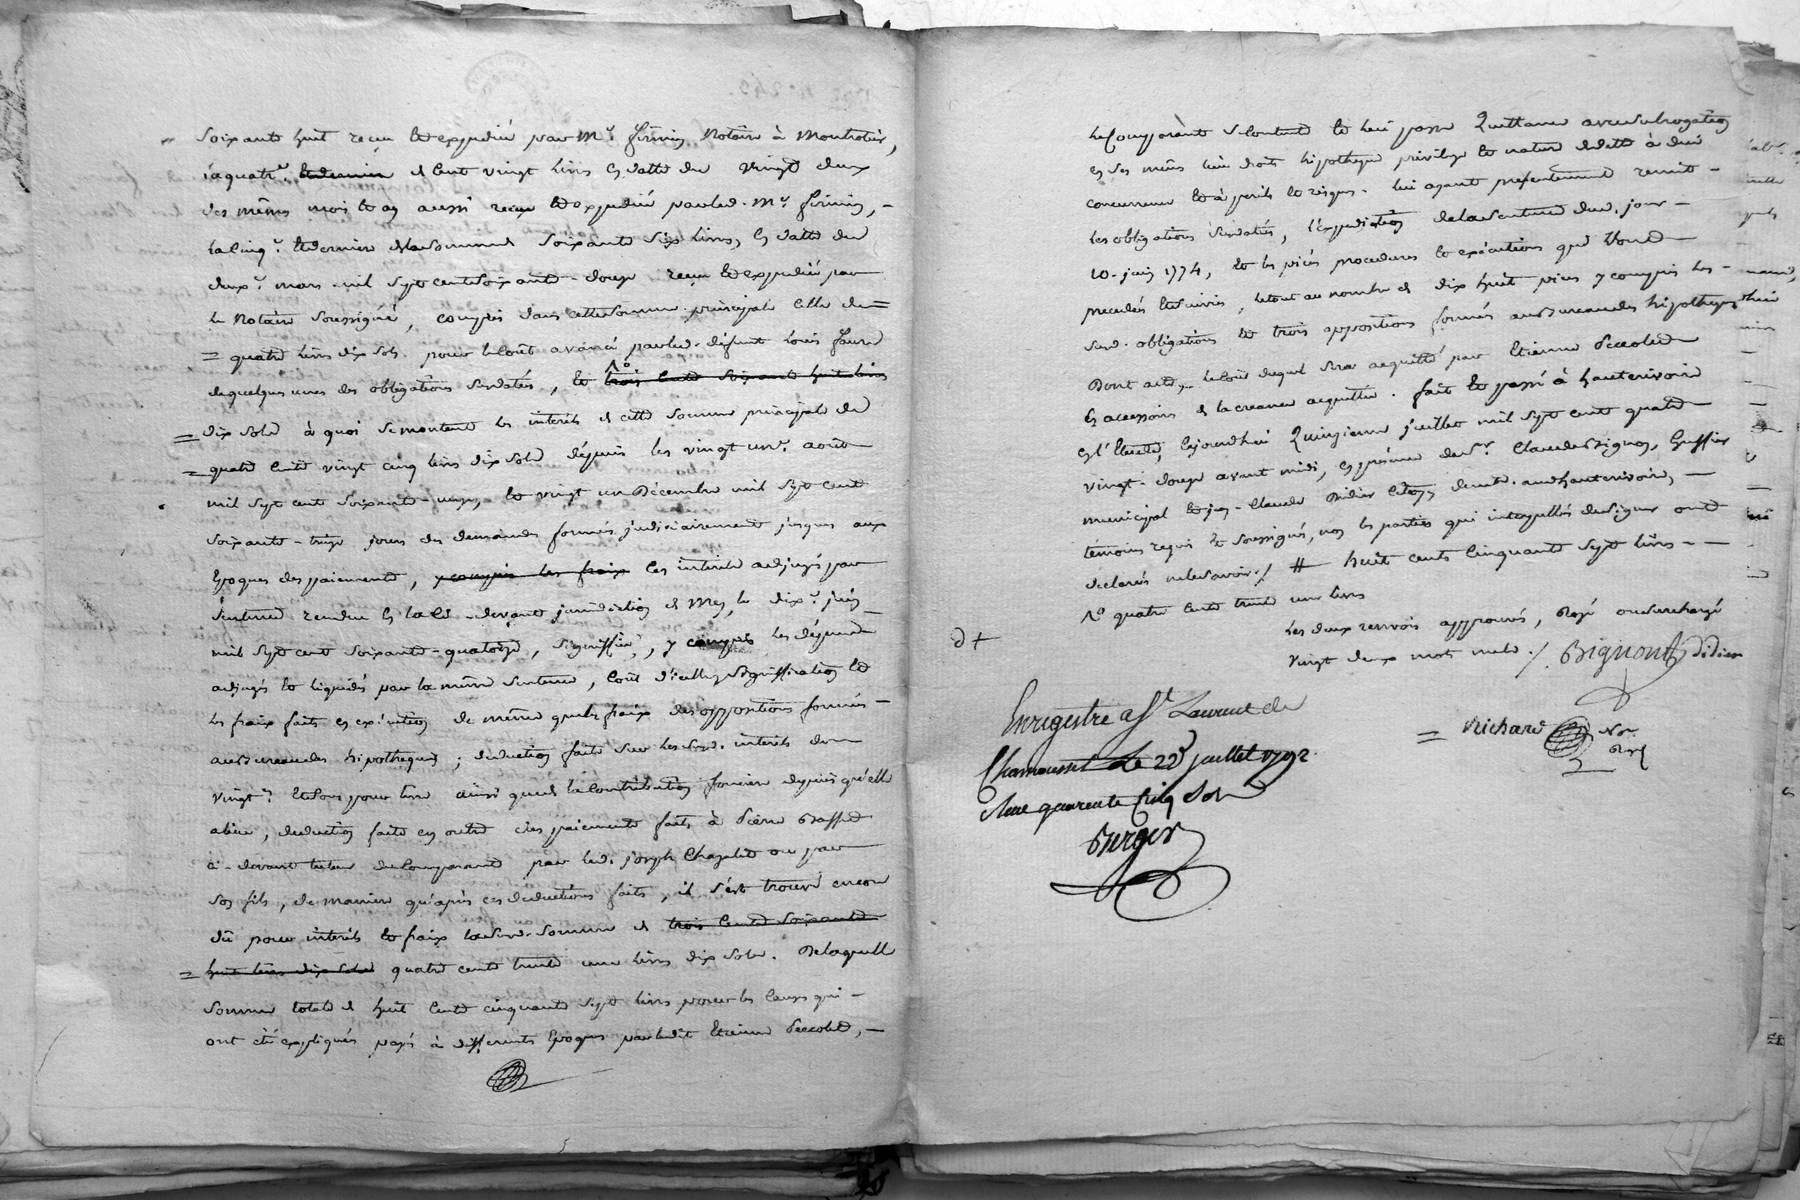 soixante huit recu et expedié par Mr. firmin Notaire à Montrotier,
la quatr.e et derniere de cent vingt livres en datte du vingt deux
des mêmes mois et an aussi recue et expediée par led. Mr. firmin, -
la cinq.e et derniere de la somme de soixante six livres, en datte du
deux.e mars mil sept cent soixante-douze recue et expediée par
le Notaire soussigné, compris dans cette somme principale celle de =
= quatre livres dix sols pour le coût avancé par led. defunt Louis faure
de quelques unes des obligations susdatées, et trois cents soixante huit livres
= dix sols à quoi se montent les interêts de cette somme principale de
= quatre cents vingt cinq livres dix sols depuis les vingt un.e août
mil sept cent soixante-onze, et vingt un Décembre mil sept cent
soixante-treize jours des demandes formées judiciairement jusques aux
Epoques des paiements, y compris les fraix les interêts adjugés par
sentence rendue en la ci-devant jurisdiction de Mey, le dix.e juin
mil sept cent soixante-quatorze, signiffiée, y compris les dépens
adjugés et liquidés par la même sentence, coût d'icelle, signiffication et
les fraix faits en exécution de même que les fraix des oppositions formées -
au bureau des hipotheques; deduction faite sur lesd. interêts d'un
vingt.e et sous pour livre ainsi que de la contribution fonciere depuis qu'elle
a lieu, deduction faite en outre des paiements faits à Pierre Basset
ci-devant tuteur du Comparant par led. joseph Chazalet ou par
son fils, de maniere qu'après ces deductions faites, il s'est trouvé encore
dû pour interêts et fraix lad. somme de trois cents soixante
= huit livres dix sols quatre cents trente une livres dix sols. De laquelle
somme totale de huit cents cinquante sept livres pour les causes qui -
ont été expliquées payé à differents Epoques par ledit Etienne Pecolet, -
le Comparant se contente et lui passe Quittance avec subrogation
en ses mêmes lieu droits hipotheque privilege et nature de dette à due
concurrence et à perils et risques. lui ayant presentement remit -
les obligations susdatées, l'expedition de la sentence dud. jour -
10. juin 1774, et les pieces procedures et exécutions qui l'ont
precedés et suivis, le tout au nombre de dix huit pieces y compris les -
susd. obligations et trois oppositions formées au bureau des hipotheques
Dont acte, le coût duquel sera acquitté par Etienne Pecolet
en accessoire de la creance acquittée. fait et passé à hauterivoire
en l'Etude, cejourdhui Quinzieme juillet mil sept cent quatre
vingt-douze avant midi, en présence de Sr. Claude Bignon, Greffier
municipal et jn-Claude Didier citoyens demt. aud hauterivoire, -
témoins requis et soussignés, non les parties qui interpellées de signer ont
declarés ne le savoir./. # huit cents cinquante sept livres - -
No quatre cents trente une livres
les deux renvois approuvés, Rayé ou surchargé
vingt deux mots nuls./. Bignon Didier
= Richard Nre.
Ryl
Enregistré a St Laurent de
Chamousset le 22e juillet 1792.
Reçu quarente cinq Sols
Berger